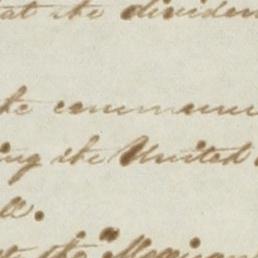 at the dividen
the commun
ing the United
the Mexican